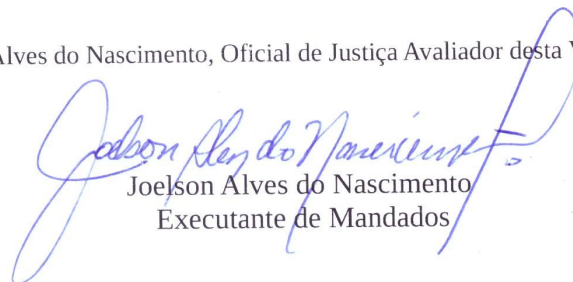 Alves do Nascimento, Oficial de Justiça Avaliador desta V
Joelson Alves do Nascimento
Joelson Alves do Nascimento
Executante de Mandados